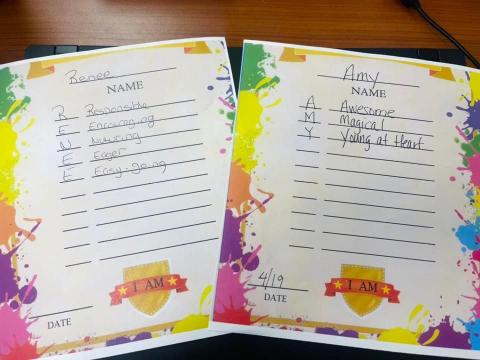 Renee
NAME
R Responsible
E Encouraging
N Nuturing
E Eager
E Easy-going
I AM
DATE
Amy
NAME
A Awesome
M Magical
Y Young at Heart
4/19
DATE
I AM